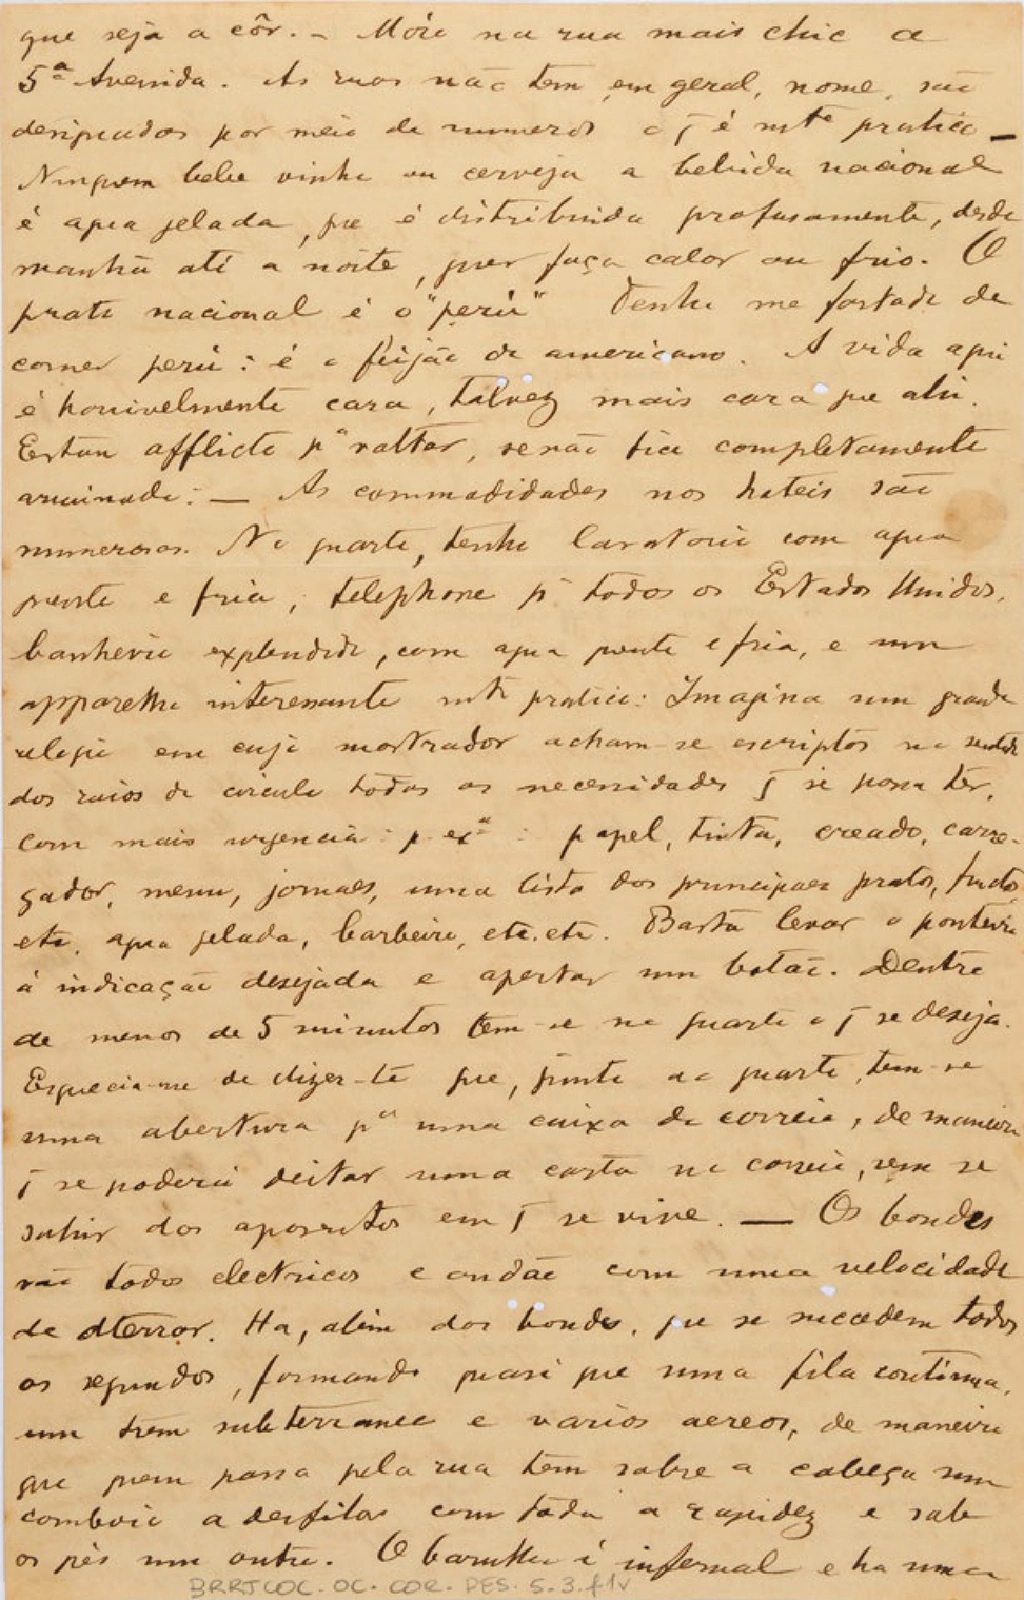 que seja a côr. – Móro na rua mais chic a
5ª Avenida. As ruas não tem em geral, nome, são
designadas por meio de numeros o q̄ é mto pratico –
Ninguem bebe vinho ou cerveja a bebida nacional
é agua gelada, que é distribuida profusamente, desde
manhã até a noite, quer faça calor ou frio. O
prato nacional é o "perú" Tenho me fartado de
comer perú: é o feijão do americano. A vida aqui
é horrivelmente cara, talvez mais cara que ahi.
Estou afflicto pª voltar, senão fico completamente
arruinado: — As commodidades nos hoteis são
numerosas. No quarto, tenho lavatorio com agua
quente e fria, telephone pª todos os Estados Unidos,
banheiro explendido, com agua quente e fria, e um
apparelho interessante mto pratico: Imagina um grande
relogio em cujo mostrador acham-se escriptos no sentido
dos raios do circulo todas as necessidades q̄ se possa ter,
com mais urgencia: p. exª: papel, tinta, creado, carre-
gador, menu, jornaes, uma lista dos principaes pratos, fructas
etc, agua gelada, barbeiro, etc. etc. Basta levar o ponteiro
á indicação desejada e apertar um botão. Dentro
de menos de 5 minutos tem-se no quarto o q̄ se deseja.
Esquecia-me de dizer-te que, junto ao quarto, tem-se
uma abertura pª uma caixa do correio, de maneira
q̄ se poderá deitar uma carta no correio, sem se
sahir dos aposentos em q̄ se vive. — Os bondes
são todos electricos e andão com uma velocidade
de aterrar. Ha, alem dos bondes, que se succedem todos
os segundos, formando quasi que uma fila continua,
um trem subterraneo e varios aereos, de maneira
que quem passa pela rua tem sobre a cabeça um
comboio a desfilar com toda a rapidez e sob
os pés um outro. O barulho é infernal e ha uma
BRRJCOC.OC.COR.PES.5.3.f1v